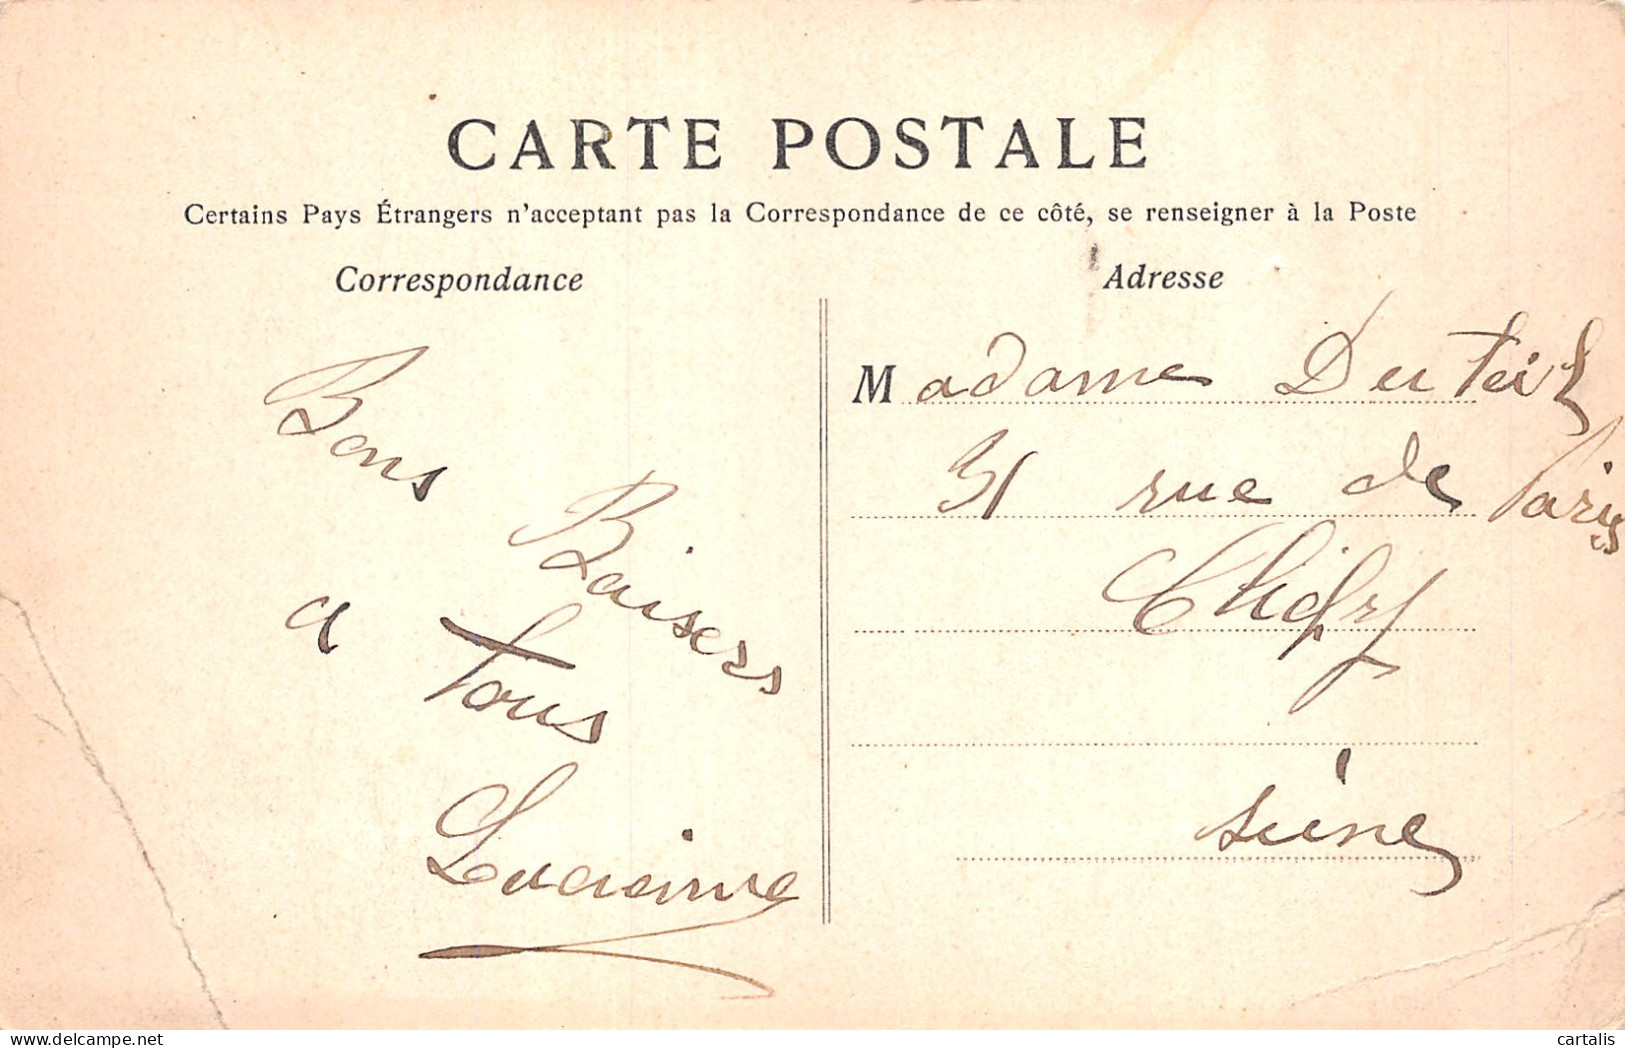 CARTE POSTALE
Certains Pays Étrangers n'acceptant pas la Correspondance de ce côté, se renseigner à la Poste
Correspondance
Bons
Baisers
a tous
Lucienne
Adresse
Madame Duteil
31 rue de Paris
Clichy
seine
delcampe.net
cartalis